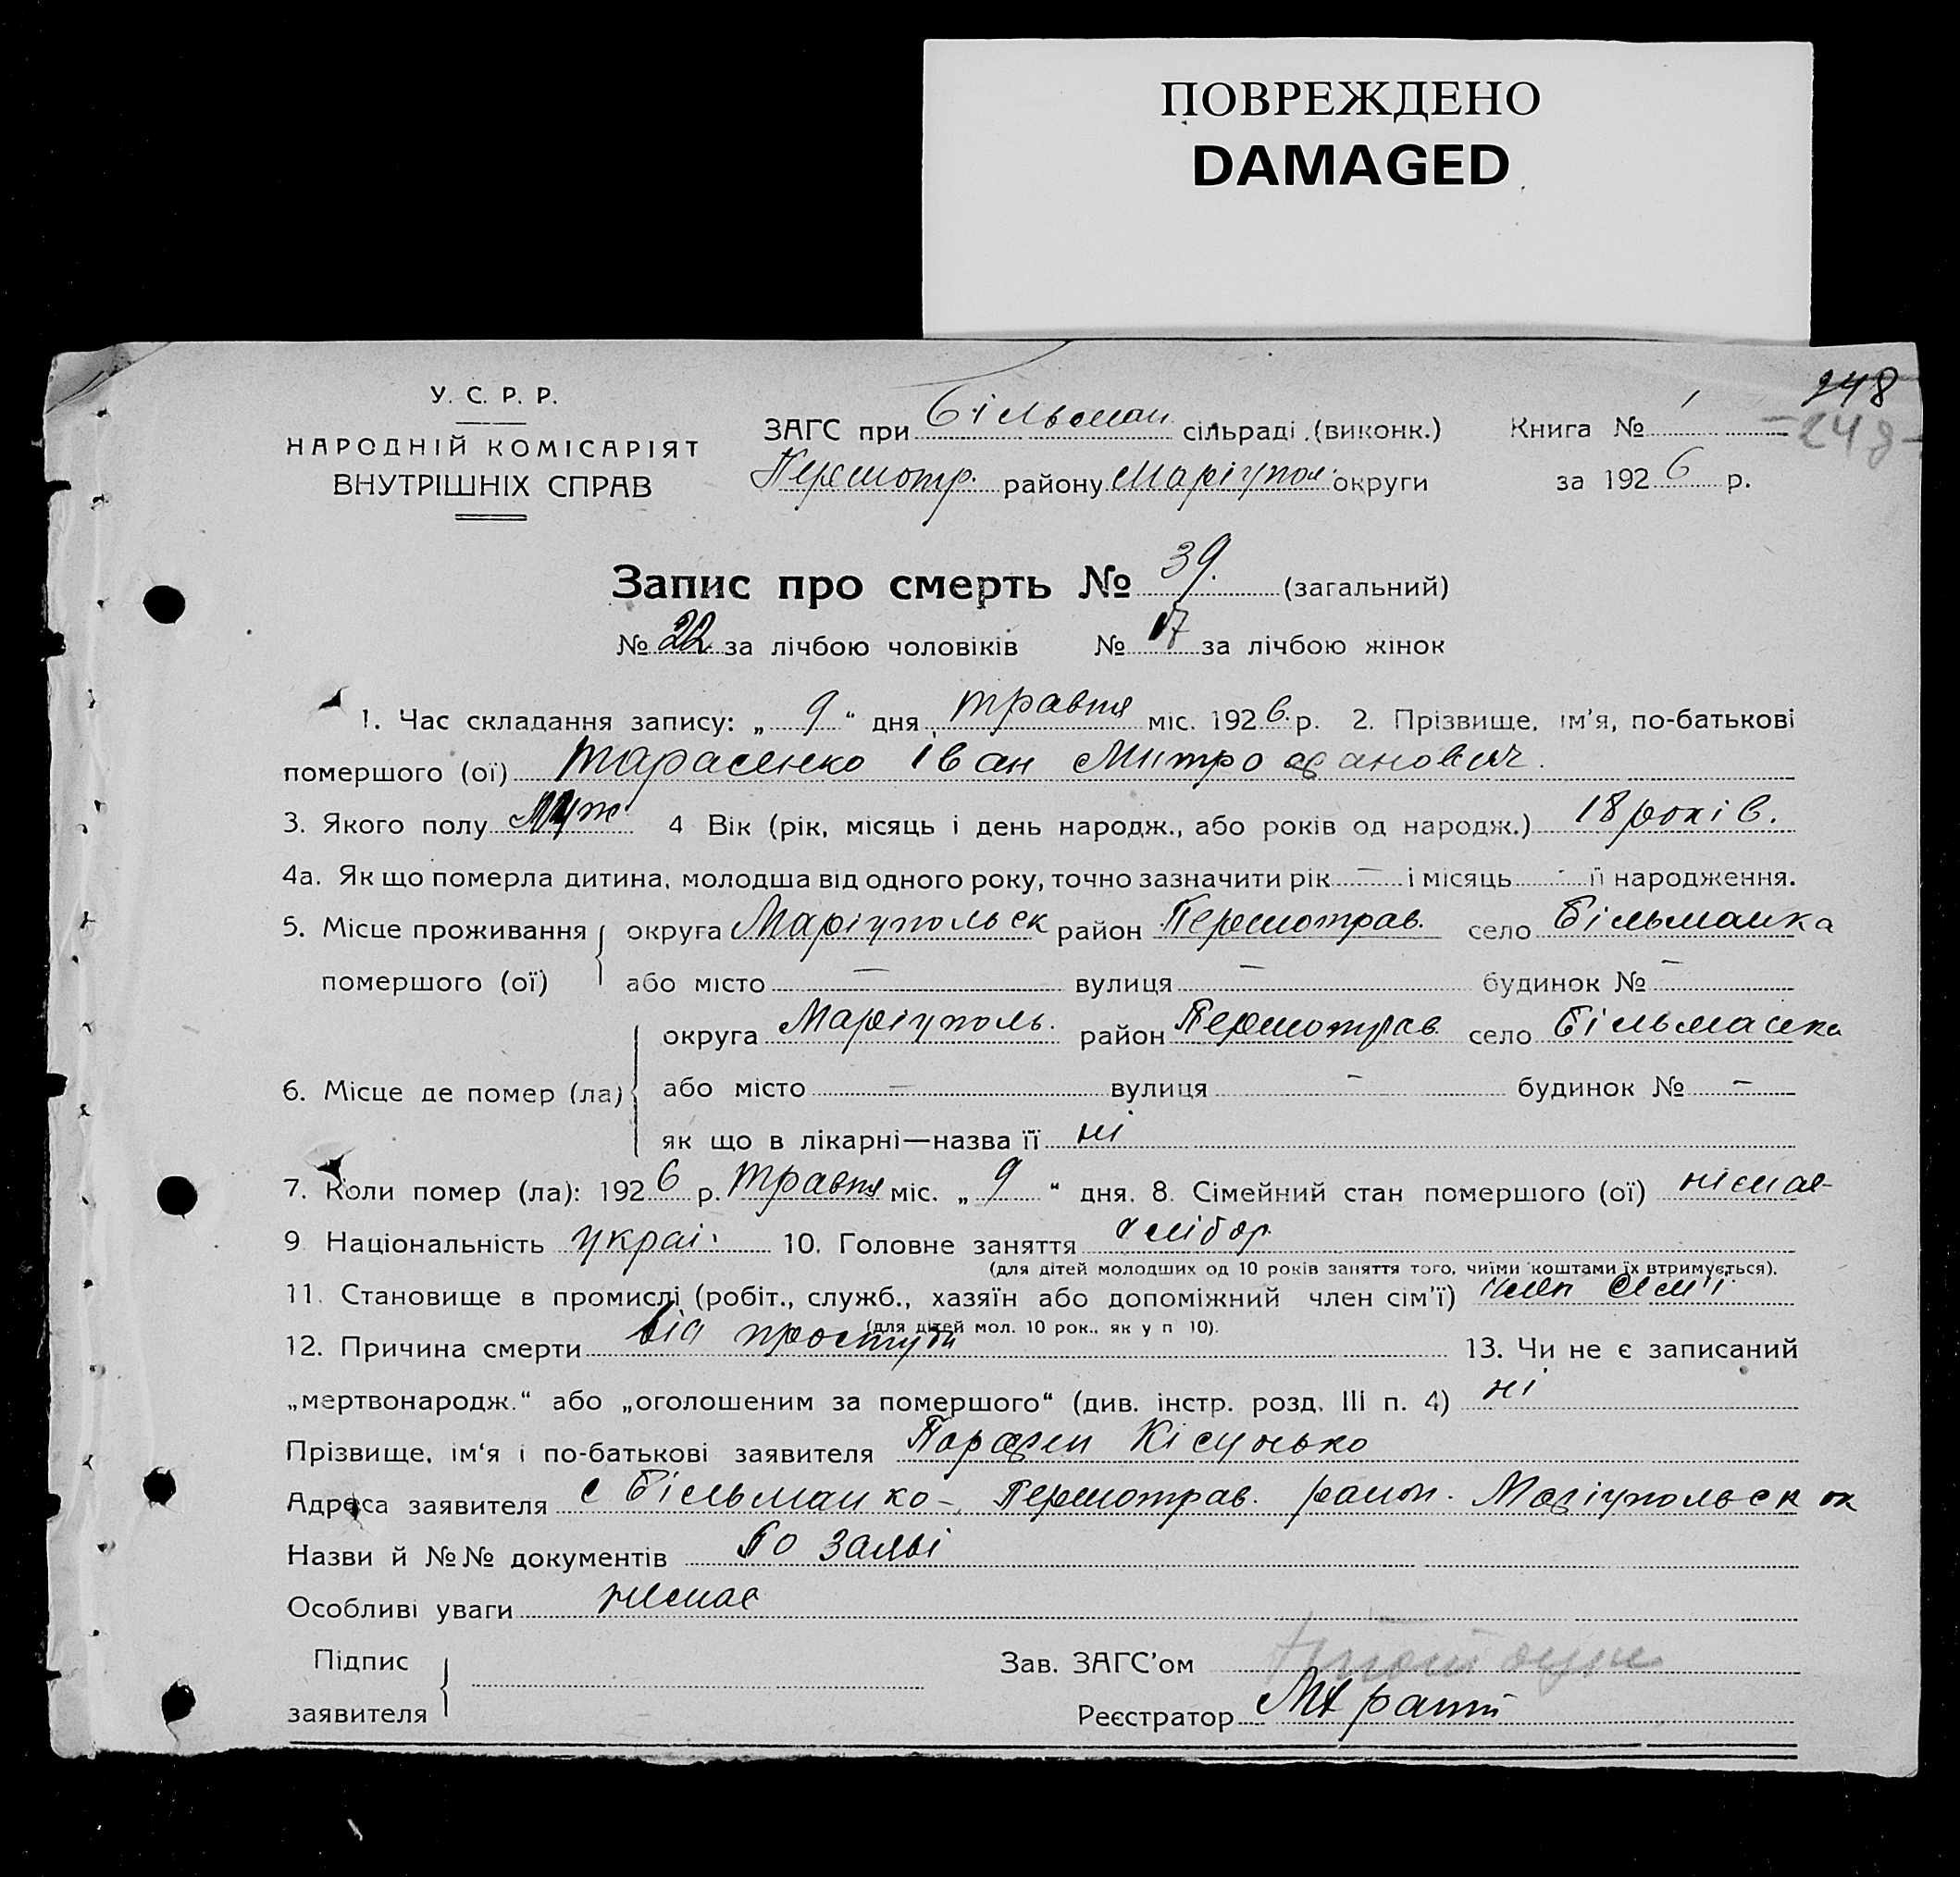 ПОВРЕЖДЕНО
DAMAGED
248
У. С. Р. Р.
НАРОДНІЙ КОМІСАРІЯТ
ВНУТРІШНІХ СПРАВ
ЗАГС при Більман сільраді (виконк.) Книга № 1 - 248 -
Першотр. району Маріупол. округи за 1926 р.
Запис про смерть № 39. (загальний)
№ 22 за лічбою чоловіків № 17 за лічбою жінок
1. Час складання запису: „ 9 “ дня травня міс. 1926. р. 2. Прізвище, ім’я, по-батькові
помершого (ої) Тарасенко Іван Митрофанович.
3. Якого полу Муж 4 Вік (рік, місяць і день народж., або років од народж.) 18 років.
4а. Як що померла дитина, молодша від одного року, точно зазначити рік — і місяць - її народження.
5. Місце проживання помершого (ої) округа Маріупольск район Першотрав. село Більманка
або місто — вулиця — будинок № —
6. Місце де помер (ла) округа Маріуполь. район Першотрав. село Більманка
або місто — вулиця — будинок № —
як що в лікарні—назва її ні
7. Коли помер (ла): 1926 р. травня міс. „ 9 “ дня. 8. Сімейний стан помершого (ої)
9 Національність украі. 10. Головне заняття хлібор.
(для дітей молодших од 10 років заняття того, чиїми коштами їх втримується).
11. Становище в промислі (робіт., служб., хазяїн або допоміжний член сім’ї) член сем'ї
(для дітей мол. 10 рок., як у п 10).
12. Причина смерти від простуди 13. Чи не є записаний
„мертвонародж.“ або „оголошеним за помершого“ (див. інстр. розд. III п. 4) ні
Прізвище, ім‘я і по-батькові заявителя Парфен
Адреса заявителя с Більманко-, Першотрав. район. Маріупольск ок
Назви й №№ документів По заяві
Особливі уваги немає
Підпис заявителя
Зав. ЗАГС’ом
Реєстратор